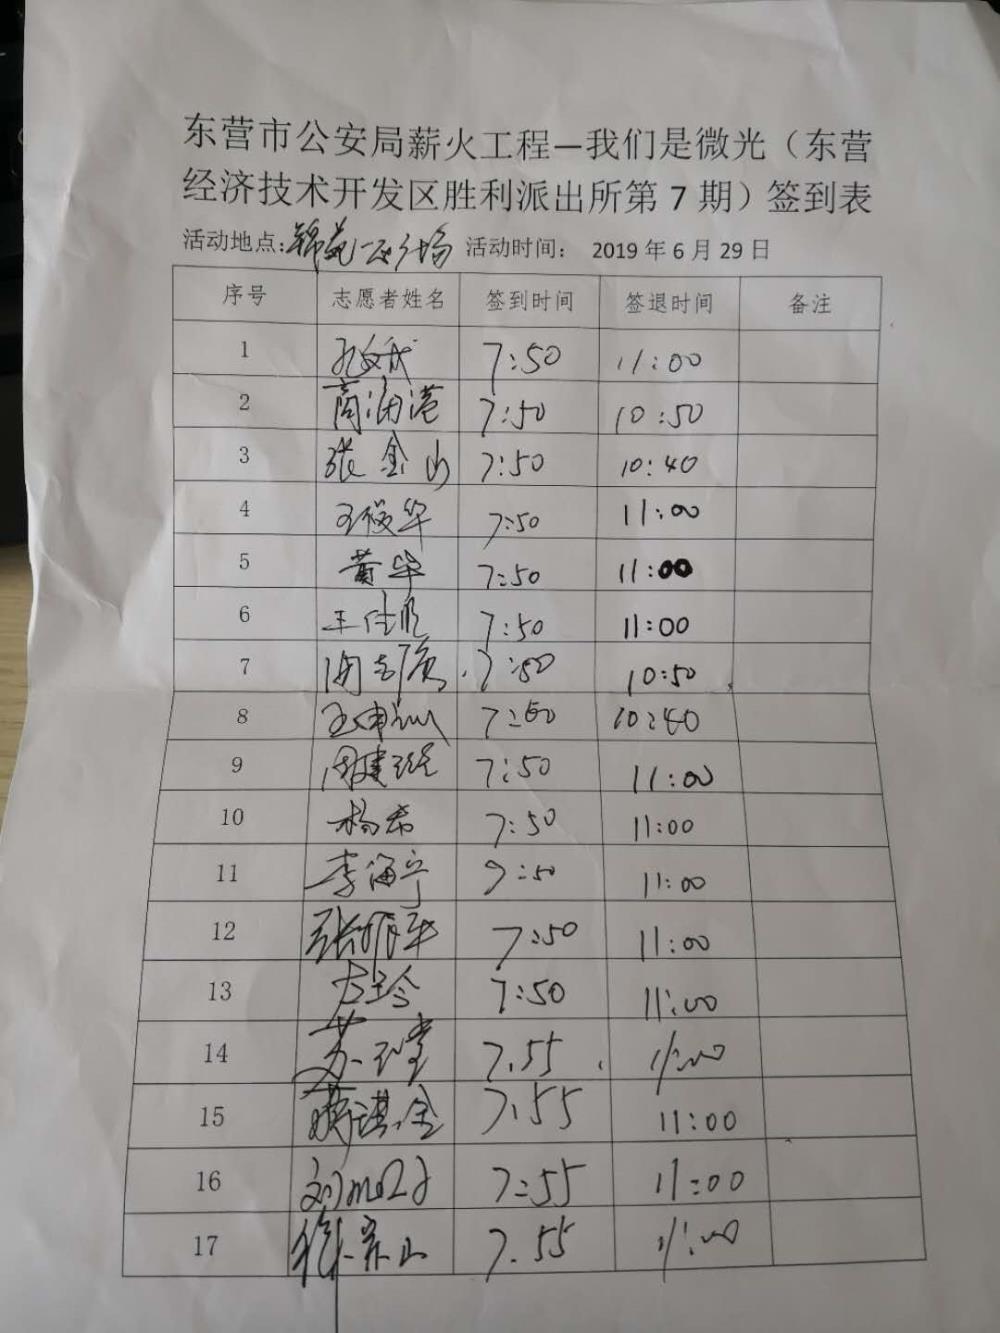 东营市公安局薪火工程—我们是微光（东营
经济技术开发区胜利派出所第 7 期）签到表
活动地点: 锦苑一区广场 活动时间： 2019 年 6 月 29 日
序号 志愿者姓名 签到时间 签退时间 备注
1 7:50 11:00
2 商润港 7:50 10:50
3 张金山 7:50 10:40
4 王俊华 7:50 11:00
5 黄华 7:50 11:00
6 王佳 7:50 11:00
7 7:50 10:50
8 7:50 10:40
9 周建 7:50 11:00
10 杨希 7:50 11:00
11 李海宁 7:50 11:00
12 张 7:50 11:00
13 古玲 7:50 11:00
14 苏 7.55 11:00
15 7.55 11:00
16 刘 7:55 11:00
17 山 7.55 11:00